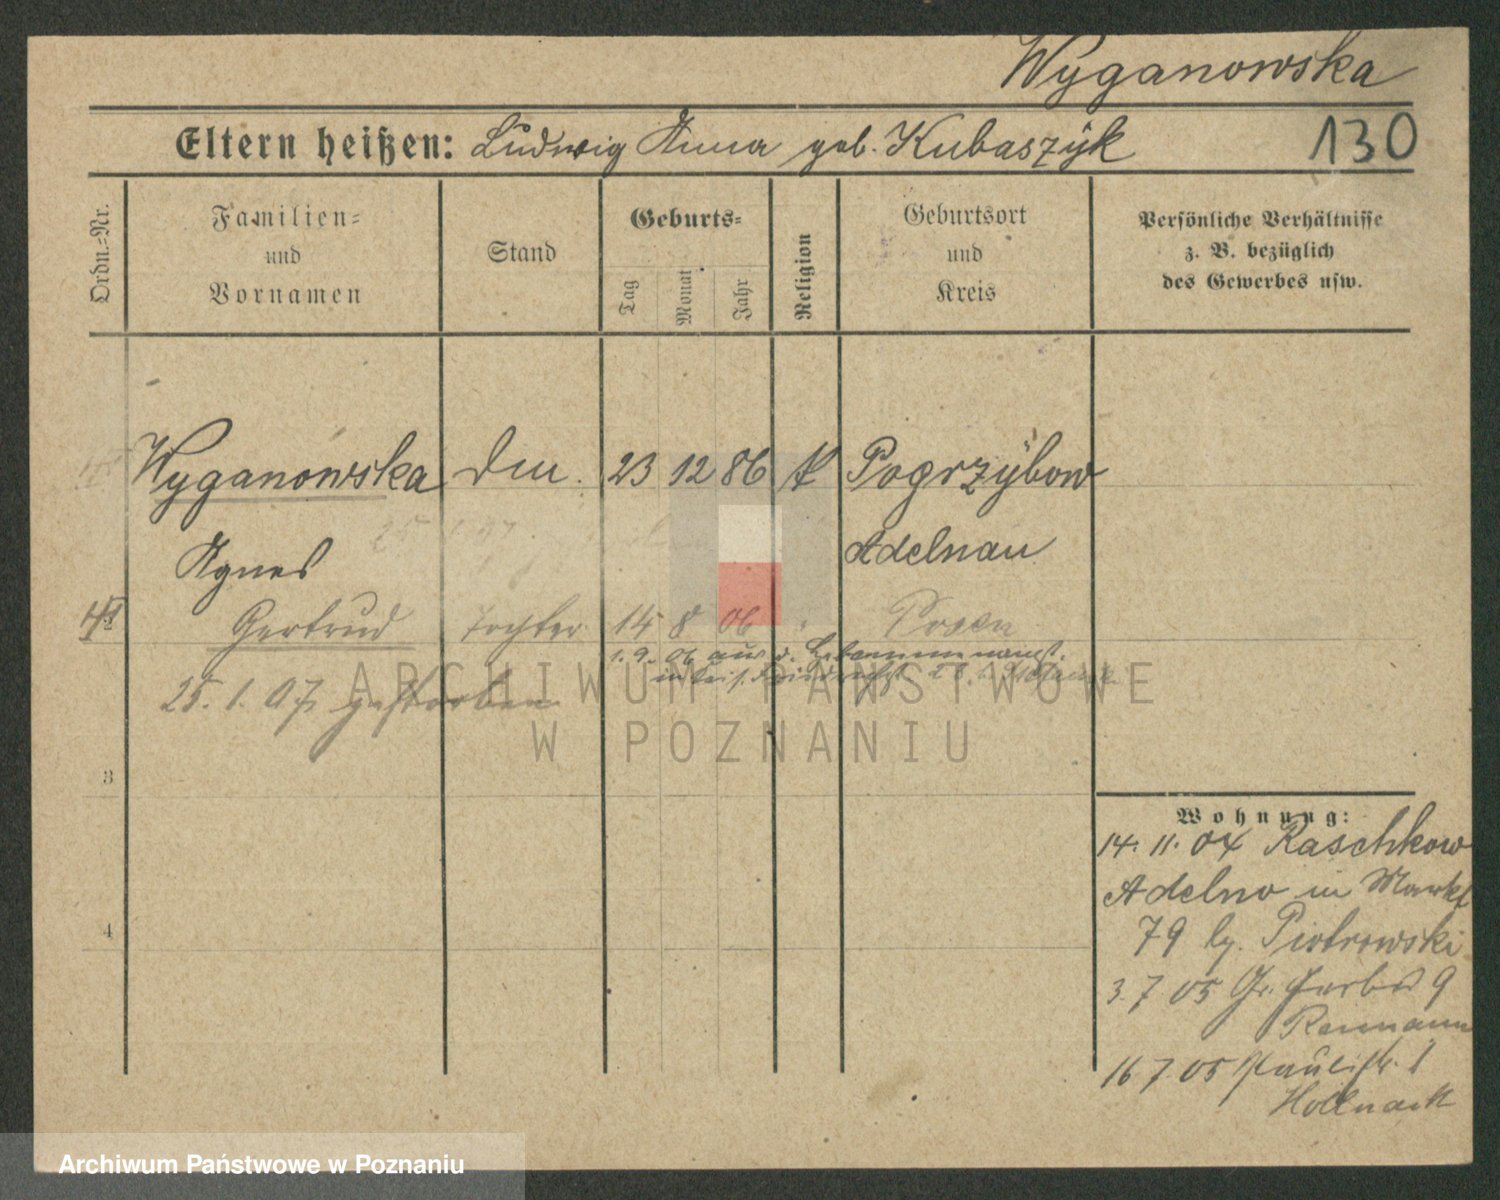 Wyganowska
Eltern heißen: Ludwig Anna geb. Kubaszyk
130
Ordn.=Nr.
Familien= und Vornamen
Stand
Geburts=
Tag
Monat
Jahr
Religion
Geburtsort und Kreis
Persönliche Verhältnisse
z. B. bezüglich
des Gewerbes usw.
Wyganowska Dm. 23 12 86 k Pogrzybow
Agnes Adelnau
Gertrud Tochter 14 8 06 " Posen
1. 9. 06 aus d.
25. 1. 07 gestorben
3
4
Wohnung:
14. 11. 04 Raschkow
Adelno in Markt
79 by. Piotrowski
3. 7. 05 Gr. Gerberst 9
16 7. 05 Paulistr. 1
ARCHIWUM PAŃSTWOWE
W POZNANIU
Archiwum Państwowe w Poznaniu